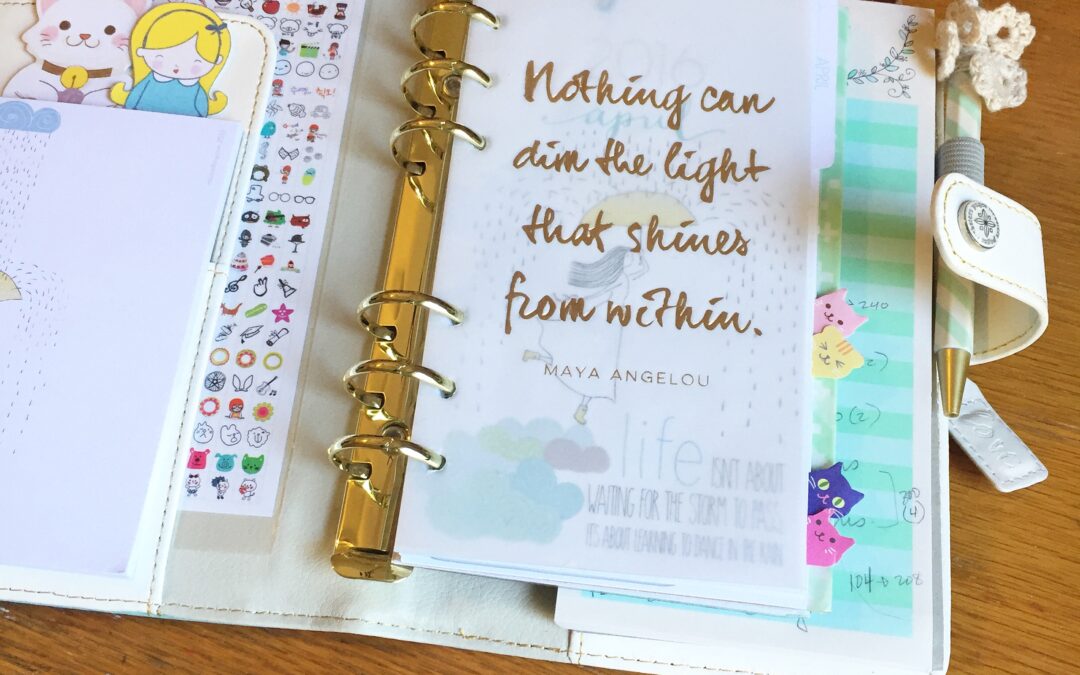 Nothing can
dim the light
that shines
from within.
MAYA ANGELOU
2016
april
life ISN'T ABOUT
WAITING FOR THE STORM TO PASS,
IT'S ABOUT LEARNING TO DANCE IN THE RAIN
APRIL
240
104 + 208
love